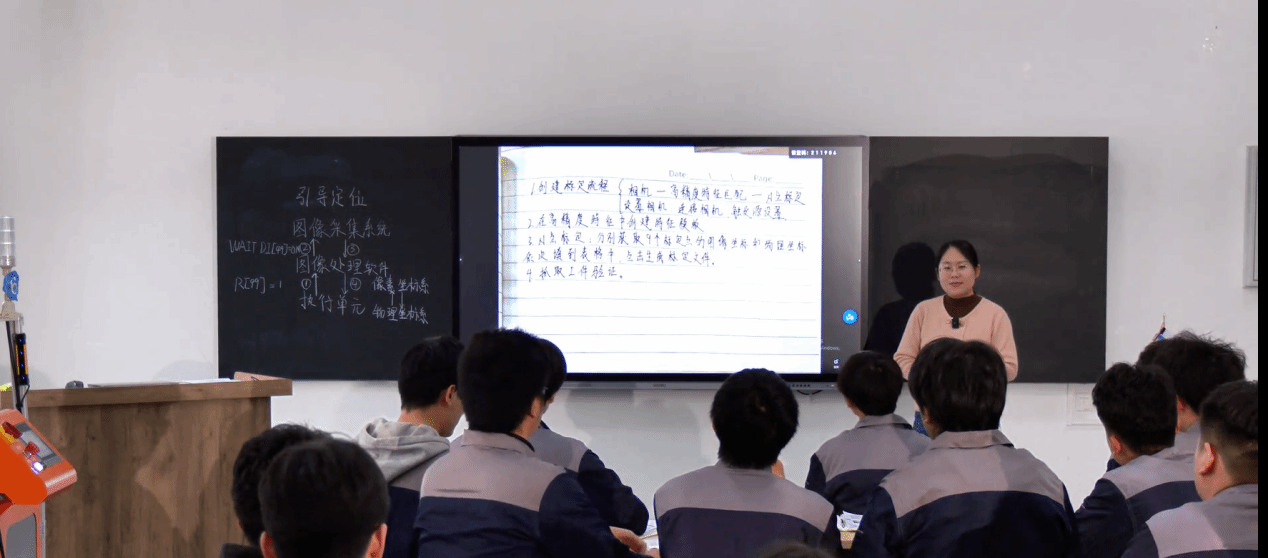 引导定位
图像采集系统
WAIT DI[99]=ON ② ③
图像处理软件
R[99]=1 ① ④ 像素坐标系
执行单元 物理坐标系
Date Page
1.创建标定流程 { 相机 — 高精度特征匹配 — N点标定
设置相机 连接相机 触发源设置
2.在高精度特征中创建特征模板
3.N点标定:分别获取9个标定点的图像坐标和物理坐标
依次填到表格中,点击生成标定文件。
4.抓取工件验证。